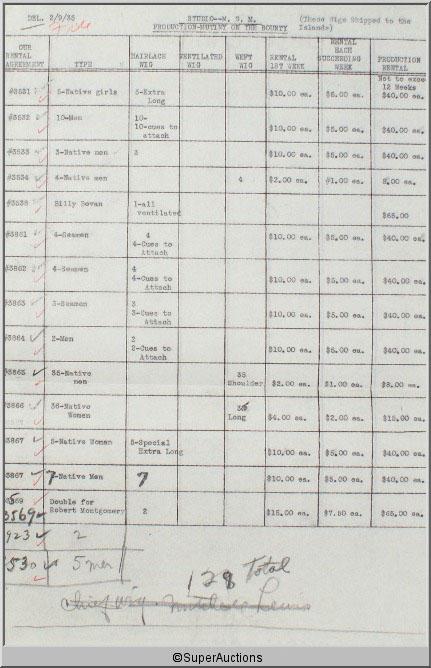 DEL. 2/9/35 STUDIO--M. G. M. (These Wigs Shipped to the
PRODUCTION-MUTINY ON THE BOUNTY Islands)
OUR RENTAL AGREEMENT TYPE HAIRLACE WIG VENTILATED WIG WEPT WIG RENTAL 1ST WEEK RENTAL EACH SUCCEEDING WEEK PRODUCTION RENTAL
Not to exceed
12 Weeks
#3531 5-Native girls 5-Extra Long $10.00 ea. $5.00 ea. $40.00 ea.
#3532 10-Men 10-
10-cues to attach $10.00 ea. $5.00 ea. $40.00 ea.
#3533 3-Native men 3 $10.00 ea. $5.00 ea. $40.00 ea.
#3534 4-Native men 4 $2.00 ea. $1.00 ea. 8.00 ea.
Billy Bevan 1-all ventilated $65.00
#3861 4-Seamen 4
4-Cues to Attach $10.00 ea. $5.00 ea. $40.00 ea.
#3862 4-Seamen 4
4-Cues to Attach $10.00 ea. $5.00 ea. $40.00 ea.
#3863 3-Seamen 3
3-Cues to Attach $10.00 ea. $5.00 ea. $40.00 ea.
#3864 2-Men 2
2-Cues to Attach $10.00 ea. $5.00 ea. $40.00 ea.
#3865 35-Native men 35 Shoulder $2.00 ea. $1.00 ea. $8.00 ea.
#3866 36-Native Women Long $4.00 ea. $2.00 ea. $15.00 ea.
#3867 5-Native Women 5-Special Extra Long $10.00 ea. $5.00 ea. $40.00 ea.
#3867 7-Native Men 7 $10.00 ea. $5.00 ea. $40.00 ea.
3569 Double for Robert Montgomery 2 $15.00 ea. $7.50 ea. $65.00 ea.
923 2
530 5 men
128 Total
chief wig Lewis
©SuperAuctions